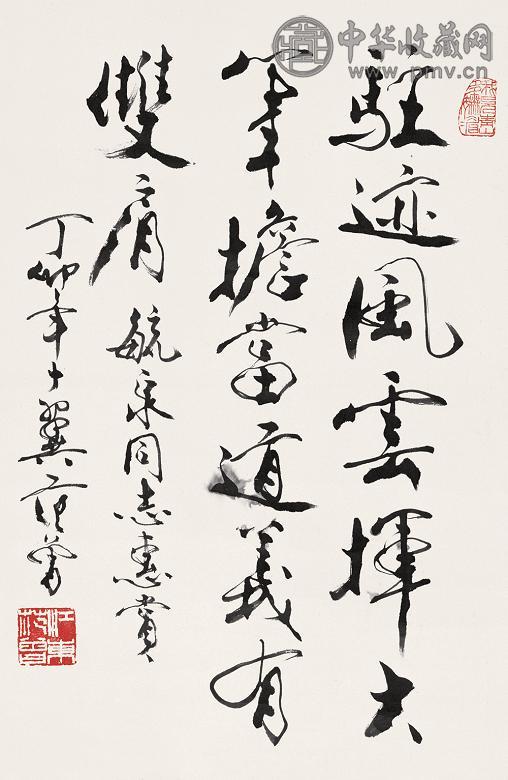 中华收藏网
www.pmv.cn
駐迹風雲揮大
筆擔當道義有
雙肩 毓同志惠賞
丁卯年十翼范曾
江東
范曾